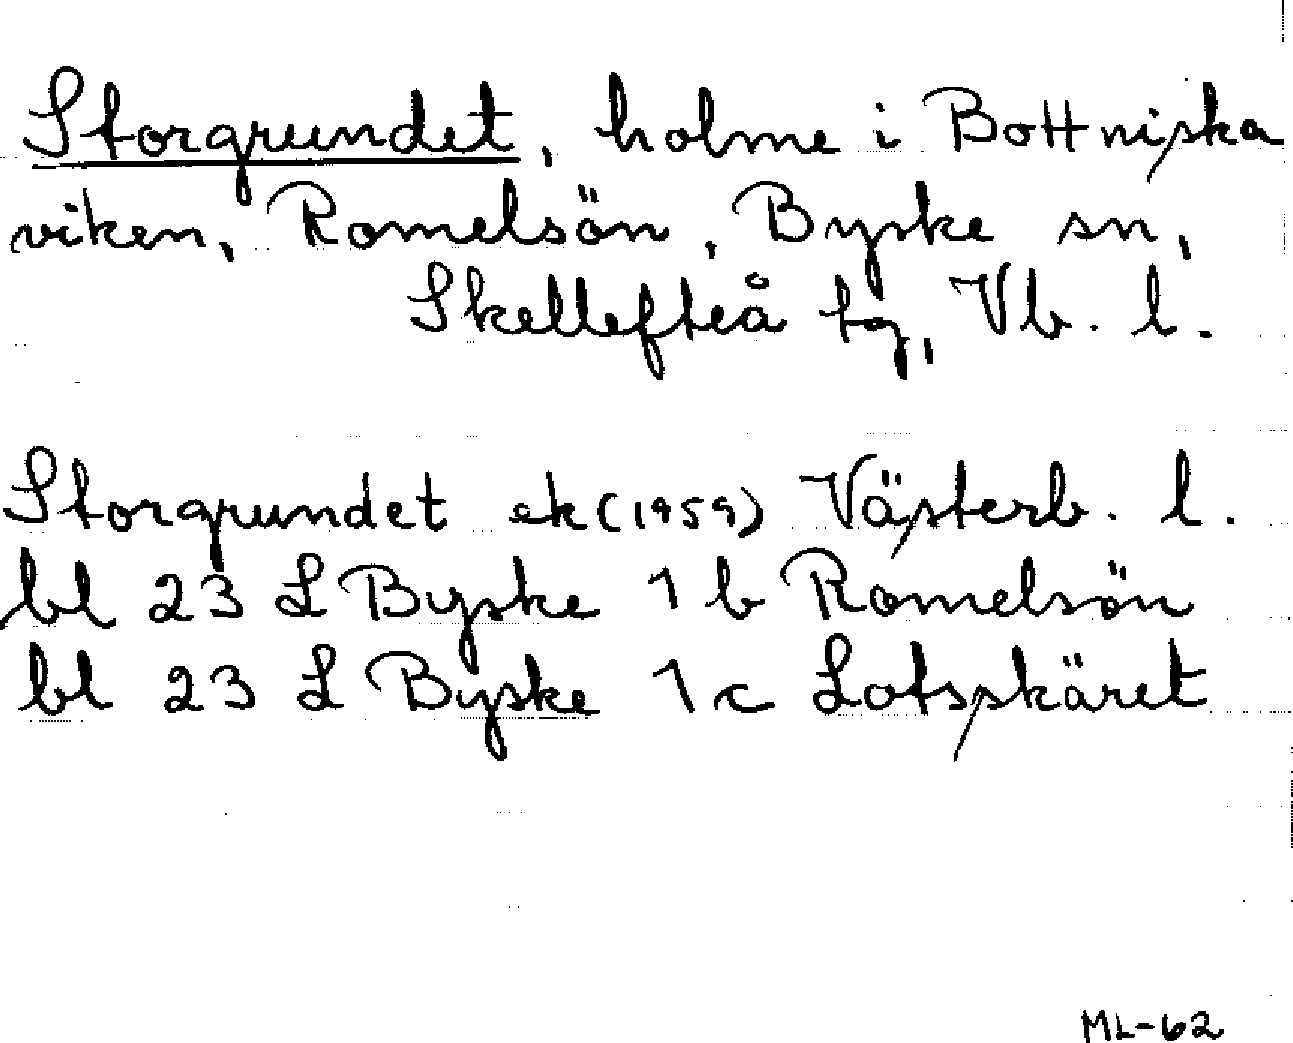 Storgrundet, holme i Bottniska
viken, Romelsön, Byske sn,
Skellefteå tg, Vb. l.
Storgrundet ek (1959) Västerb. l.
bl 23 L Byske 1 b Romelsön
bl 23 L Byske 1 c Lotsskäret
ML-62